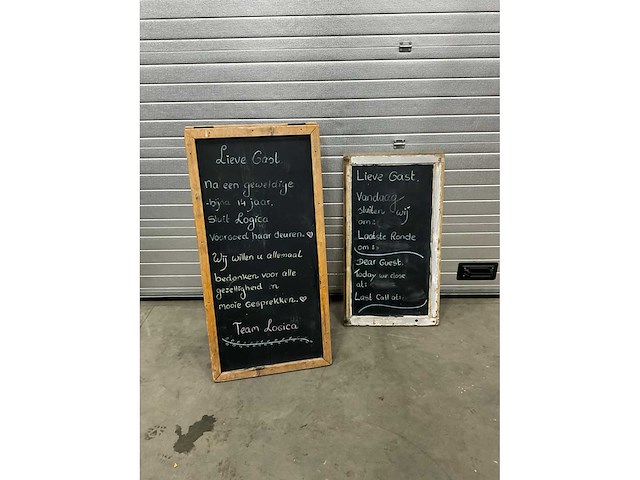 Lieve Gast
Na een geweldige
bijna 14 jaar,
Sluit Logica
Voorgoed haar deuren.
Wij willen u allemaal
bedanken voor alle
gezelligheid en
mooie Gesprekken.
Team Logica
Lieve Gast,
Vandaag
sluiten wij
om:
Laatste Ronde
om:
Dear Guest.
Today we close
at:
Last Call at: